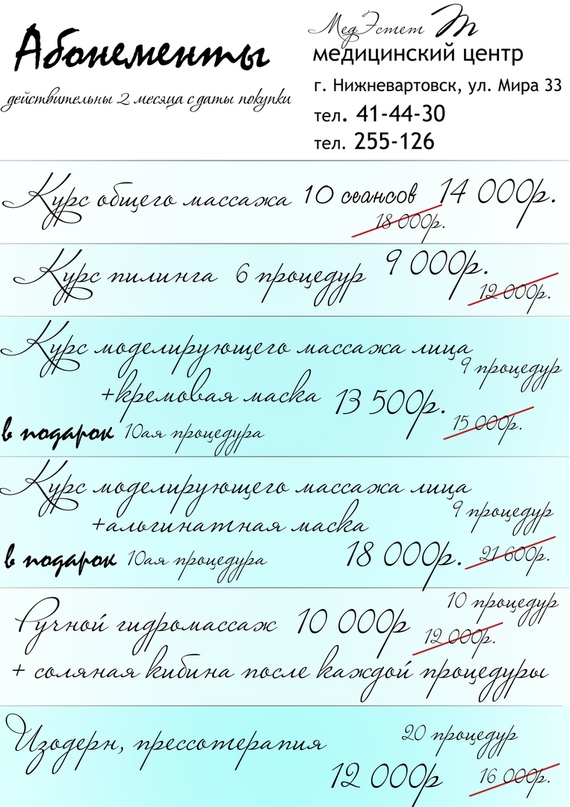 Абонементы
действительны 2 месяца с даты покупки
МедЭстет М
медицинский центр
г. Нижневартовск, ул. Мира 33
тел. 41-44-30
тел. 255-126
Курс общего массажа 10 сеансов 14 000р.
18 000р.
Курс пилинга 6 процедур 9 000р.
12 000р.
Курс моделирующего массажа лица
9 процедур
+кремовая маска 13 500р.
15 000р.
в подарок 10ая процедура
Курс моделирующего массажа лица
9 процедур
+альгинатная маска
в подарок 10ая процедура 18 000р. 21 600р.
10 процедур
Ручной гидромассаж 10 000р
12 000р.
+ соляная кибина после каждой процедуры
Изодерн, прессотерапия 20 процедур
12 000р 16 000р.